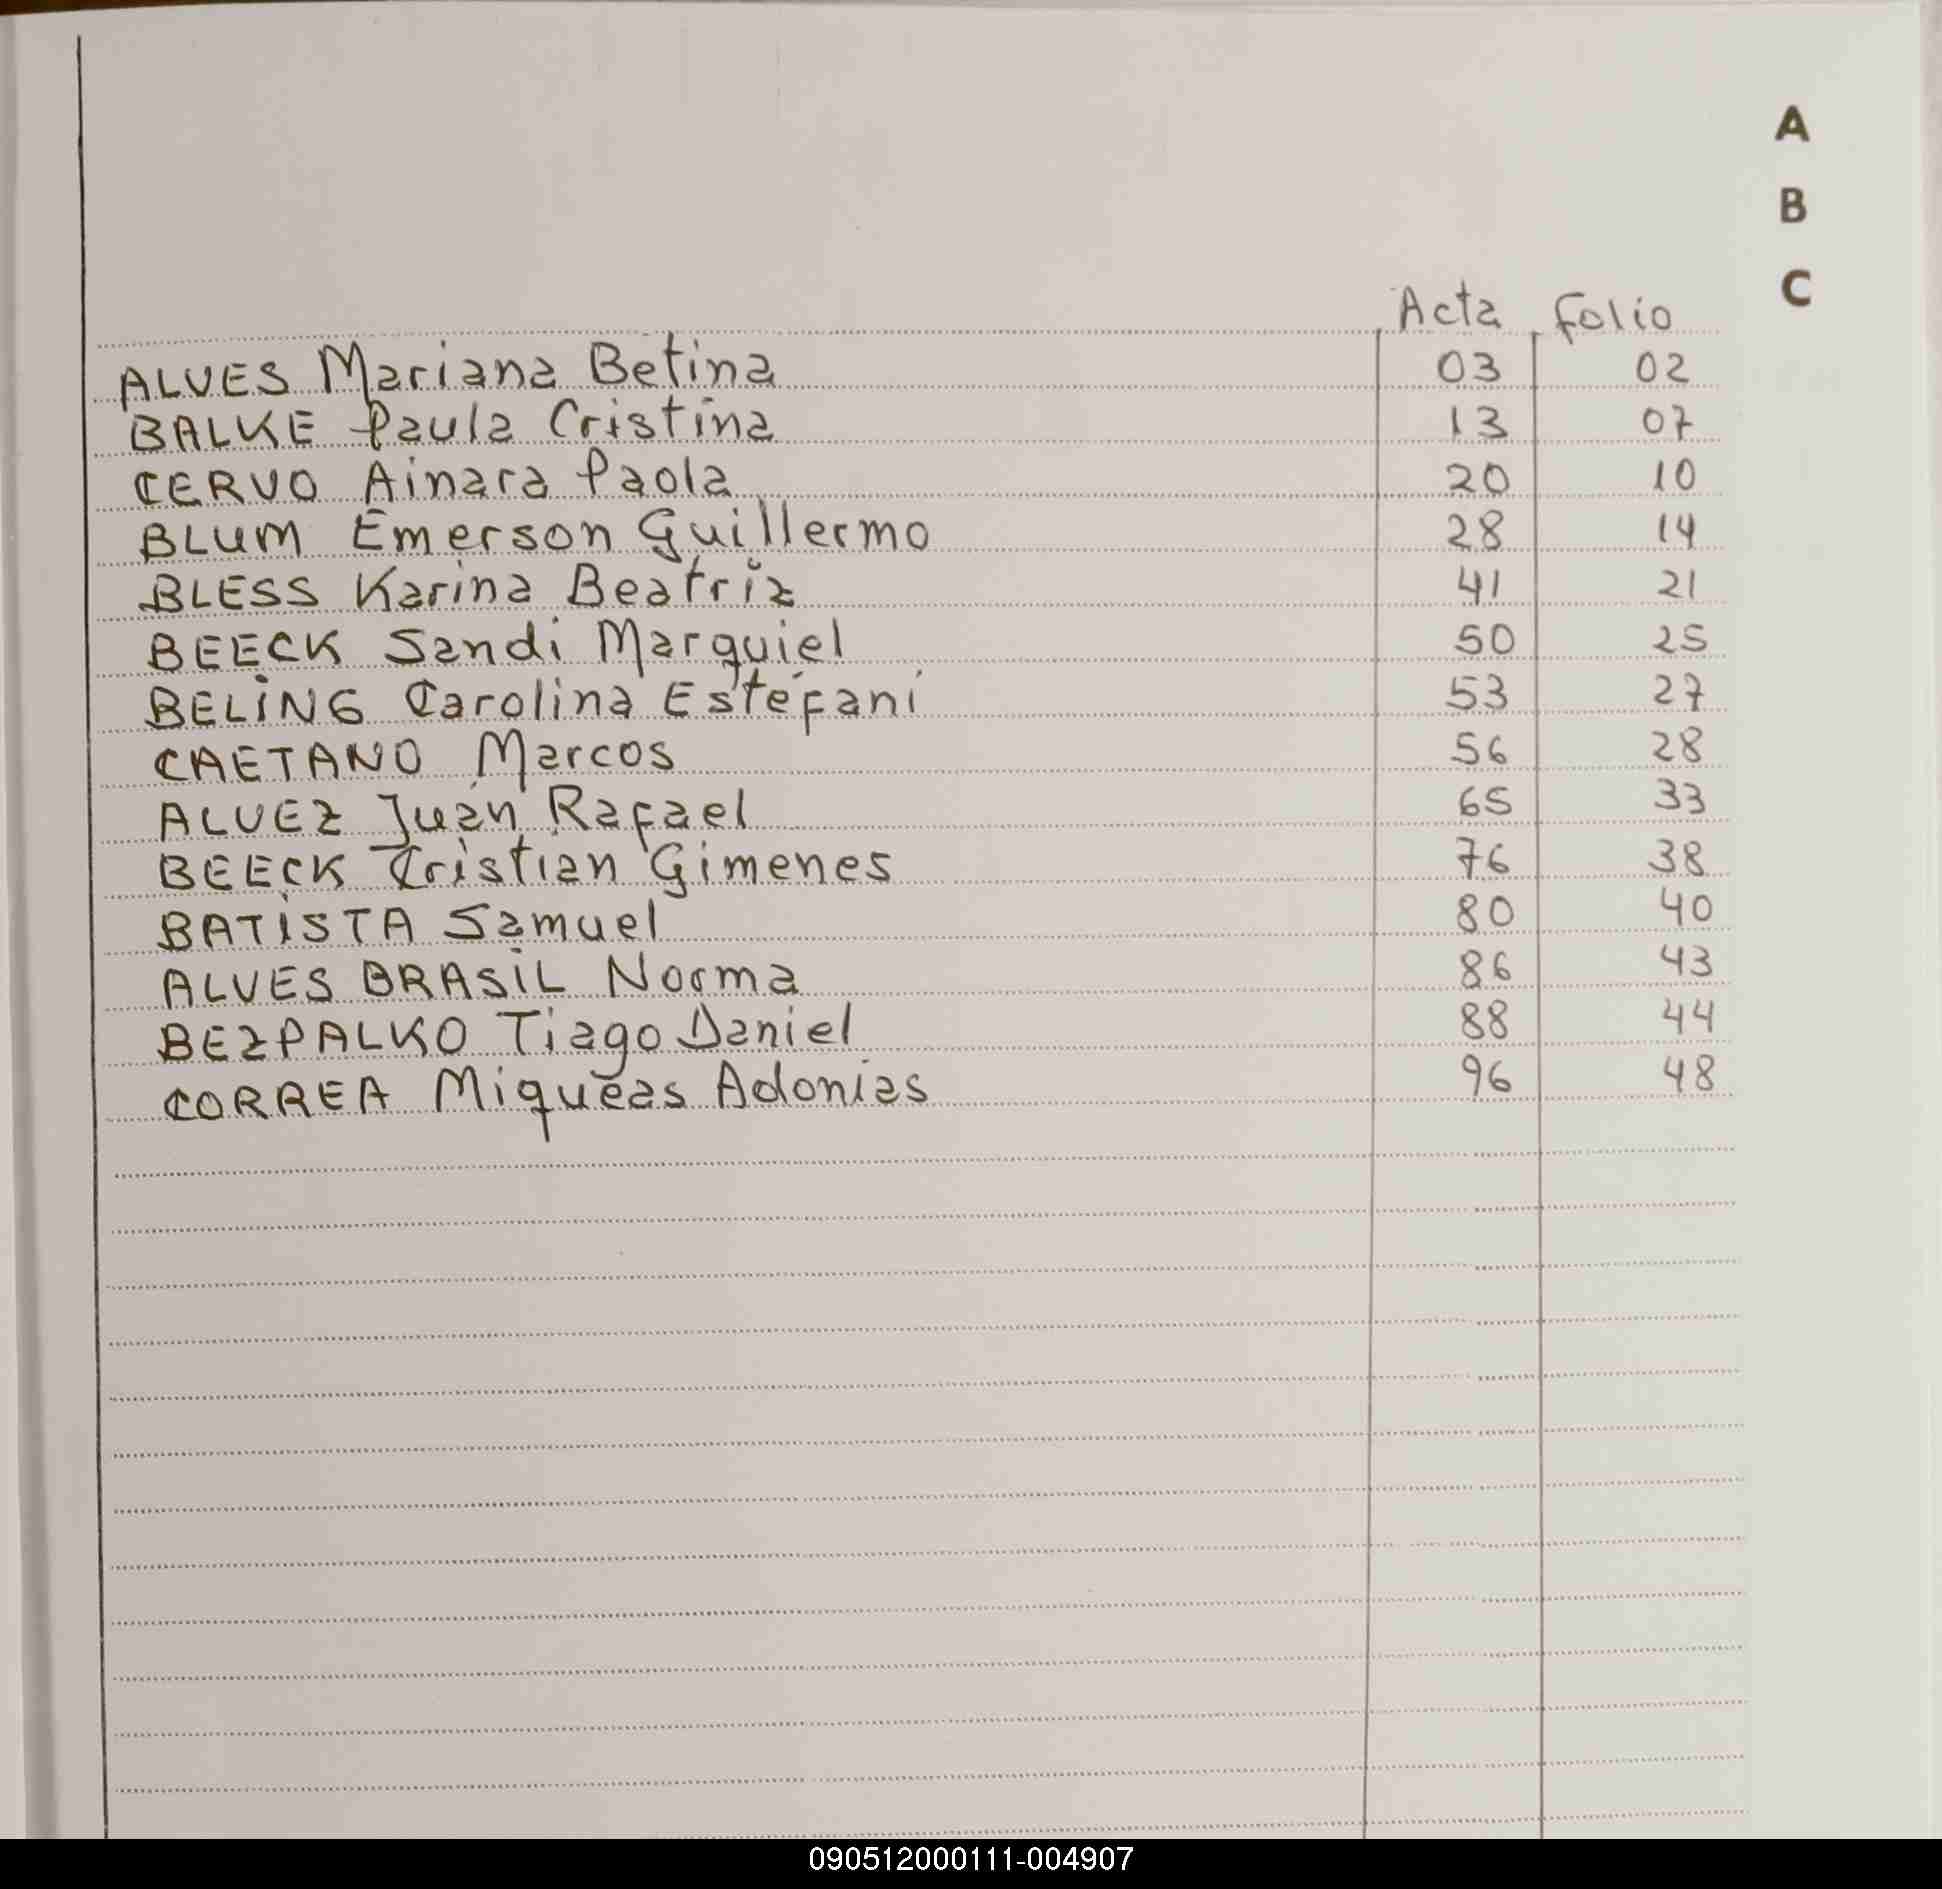 A
B
C
Acta Folio
ALVES Mariana Betina 03 02
BALKE Paula Cristina 13 07
CERVO Ainara Paola 20 10
BLUM Emerson Guillermo 28 14
BLESS Karina Beatriz 41 21
BEECK Sandi Marquiel 50 25
BELING Carolina Estefani 53 27
CAETANO Marcos 56 28
ALVEZ Juan Rafael 65 33
BEECK Cristian Gimenes 76 38
BATISTA Samuel 80 40
ALVES BRASIL Norma 86 43
BEZPALKO Tiago Daniel 88 44
CORREA Miqueas Adonias 96 48
090512000111-004907